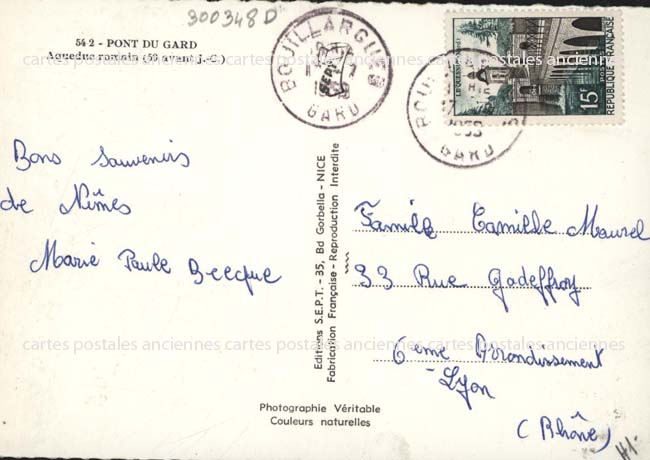 300348D
54 2 - PONT DU GARD
Aqueduc romain (59 avant J.-C.)
BOUILLARGUES
GARD
LE QUESNOY
REPUBLIQUE FRANÇAISE
15F
GARD
Bons Souvenirs
de Nîmes
Marie Paule Becque
Editions S.E.P.T. - 35, Bd Gorbella - NICE
Fabrication Française - Reproduction Interdite
Famille Camille Maurel
33 Rue Godeffroy
6ème Arrondissement
- Lyon
(Rhône)
Photographie Véritable
Couleurs naturelles
cartes postales anciennes cartes postales anciennes cartes postales anciennes cartes postales anciennes
cartes postales anciennes cartes postales anciennes cartes postales anciennes cartes postales anciennes